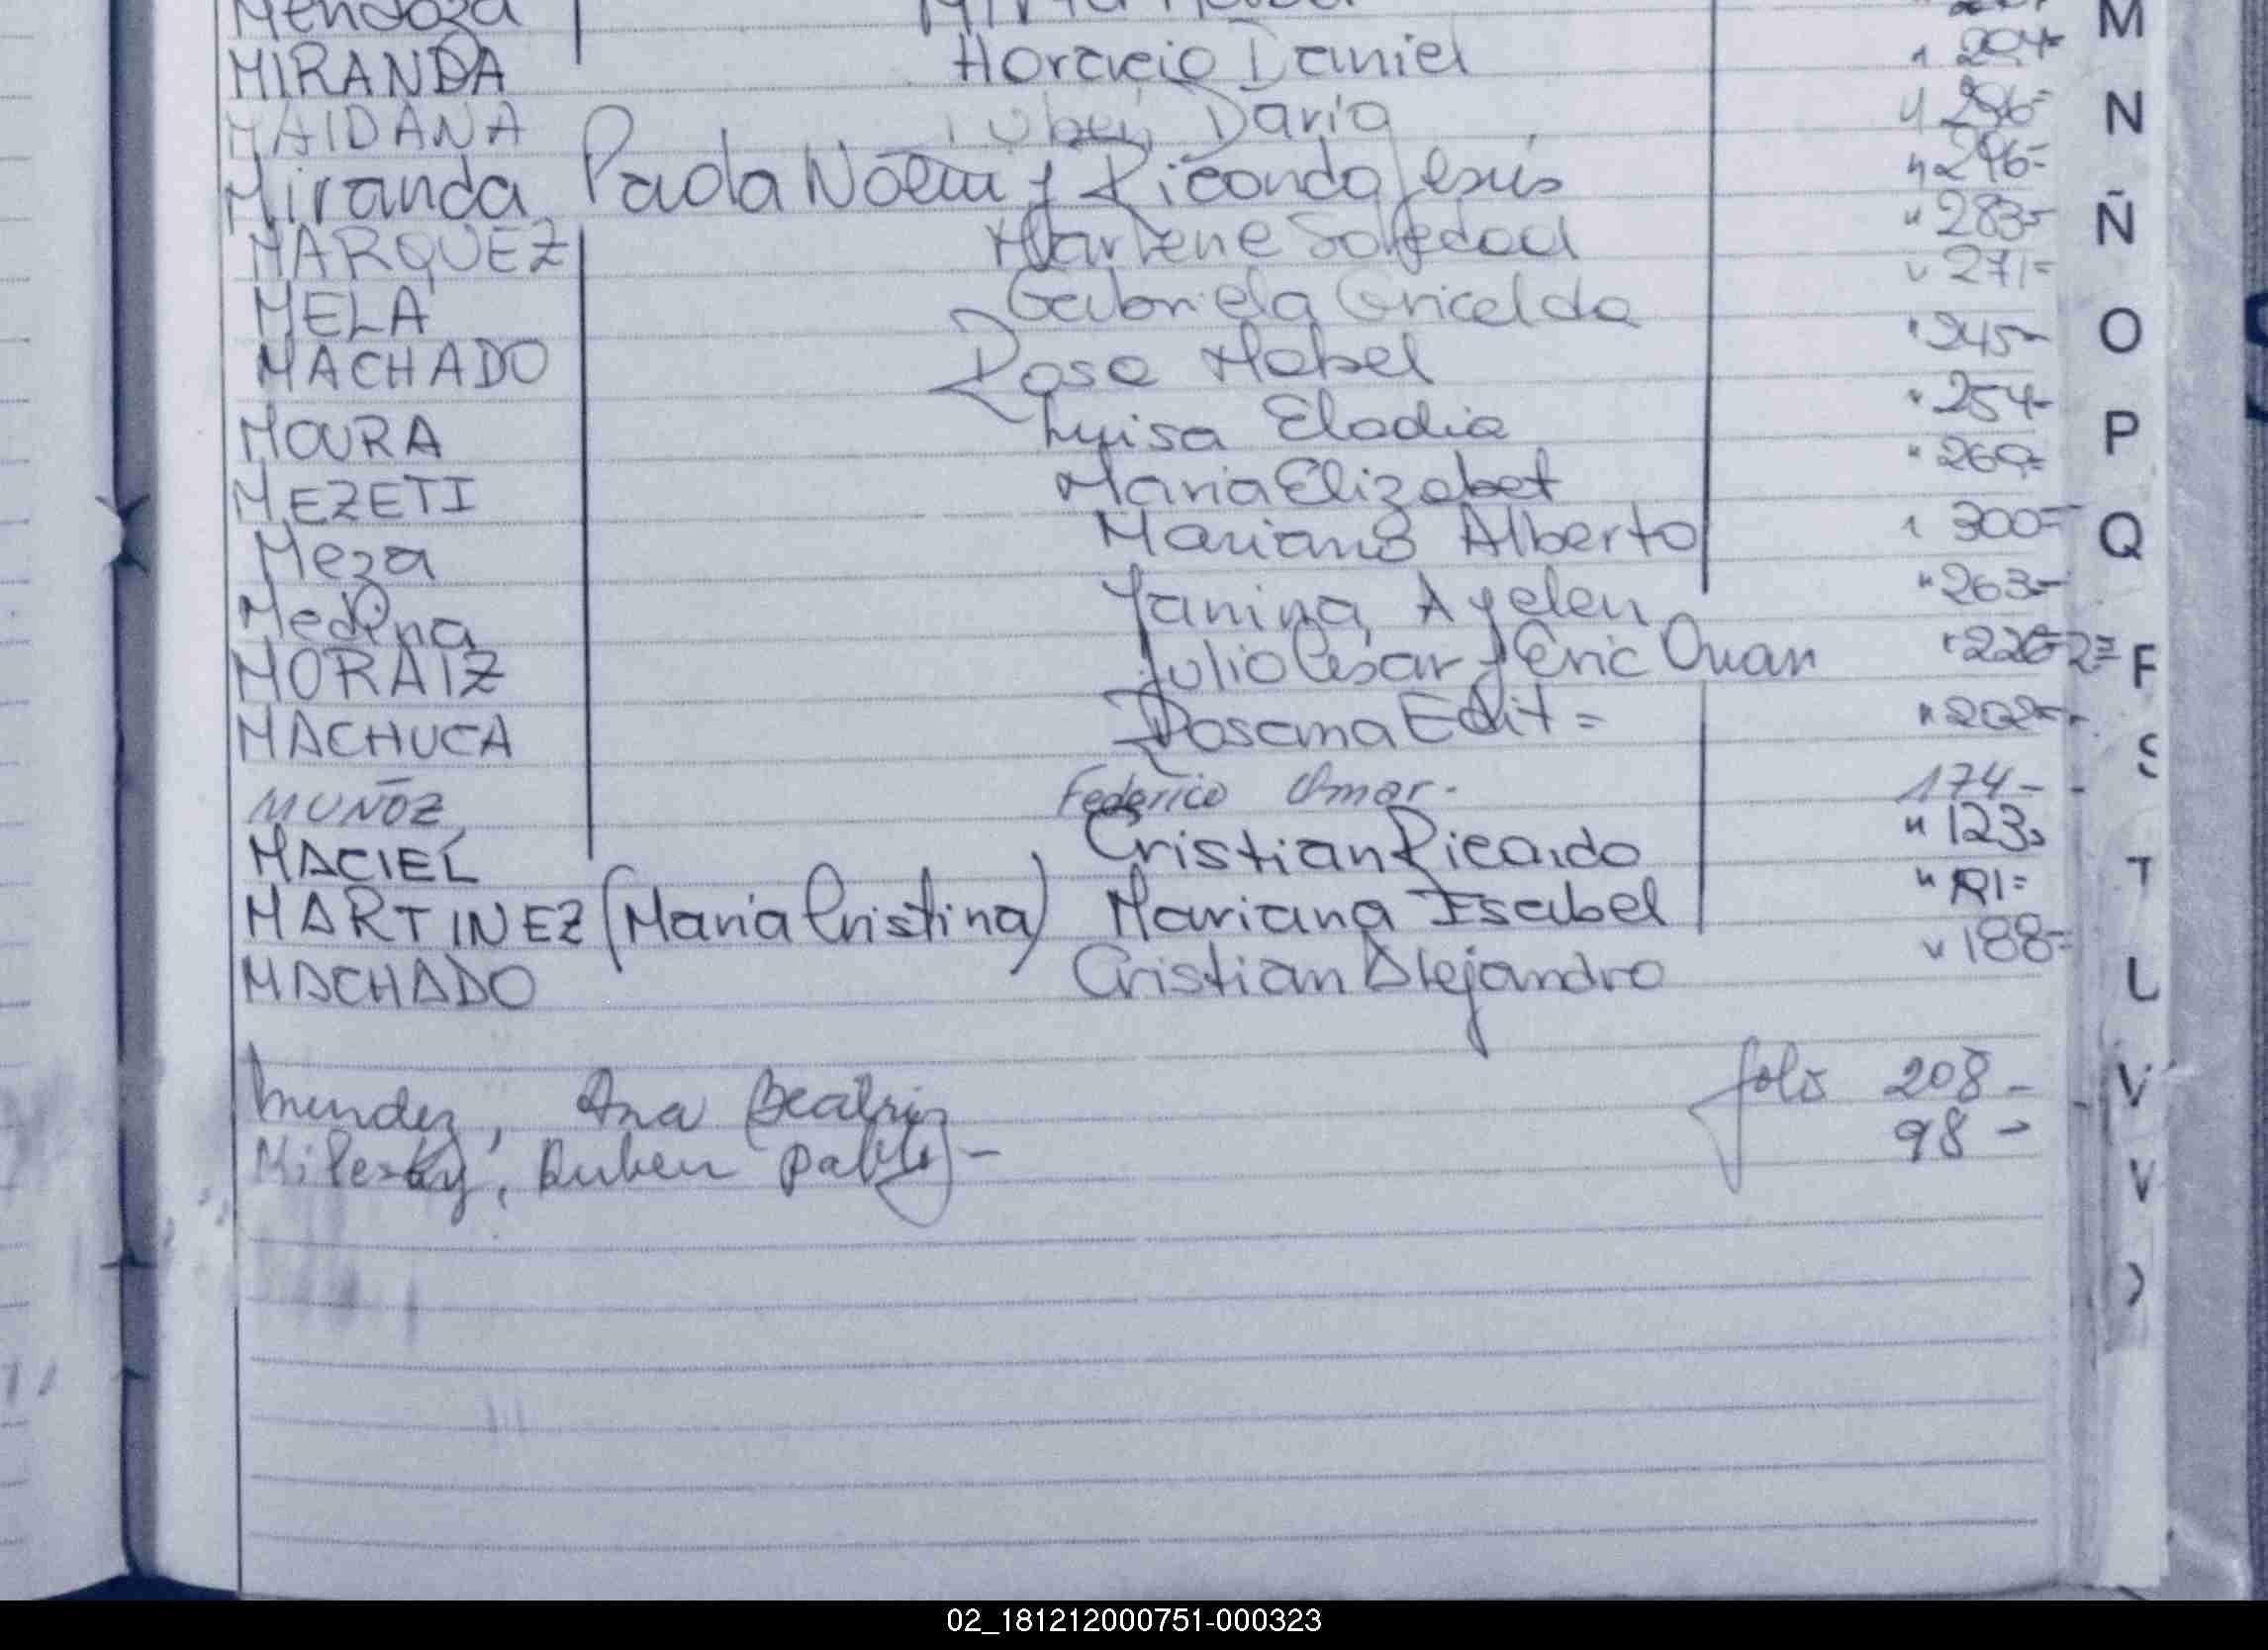 Mendoza
MIRANDA Horacio Daniel " 294-
MAIDANA Ruben Dario " 286=
Miranda Paola Noemi y Ricardo Jesus " 296=
MARQUEZ Marlene Soledad " 283-
MELA Gabriela Gricelda " 271=
MACHADO Rosa Mabel " 245-
MOURA Luisa Elodia " 254-
MEZETI Maria Elizabet
Meza Mariano Alberto " 300=
Medina Yanina Ayelen " 263-
MORAIZ Julio Cesar y Eric Ouan
MACHUCA Rosana Edit = " 202=
MUÑOZ, Federico Omar. 174-
MACIEL Cristian Ricardo " 123
MARTINEZ (Maria Cristina) Mariana Isabel
MACHADO Cristian Alejandro " 188=
Mendez, Ana Beatriz folio 208-
Ruben Pablo - 98-
M
N
Ñ
O
P
Q
S
T
V
V
02_181212000751-000323